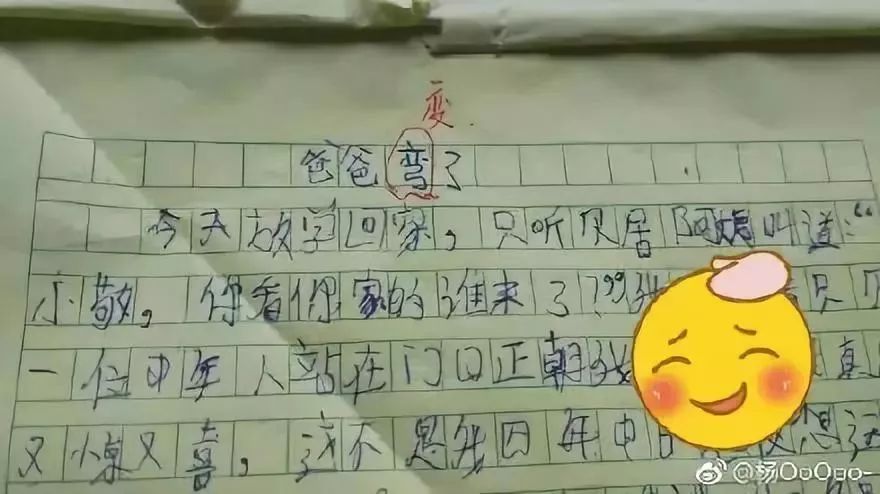 变
爸爸弯了
今天放学回家，只听见居阿姨叫道：“
小敬，你看你家的谁来了？”我 只见
一位中年人站在门口正朝我 真
又惊又喜，这不是我四年中日 思
@杨O日O日o-